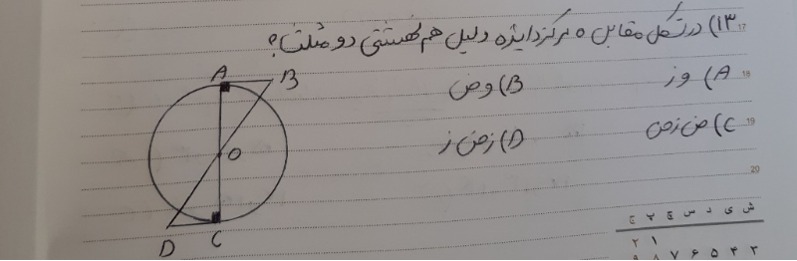 ۱۳) در شکل مقابل o مرکز دایره دلیل هم نهشتی دو مثلث؟
A) وز
B) وض
C) ض ز ض
D) ز ض ز
A
B
O
D
C
17
18
19
20
ش ی د س چ پ ج
۱ ۲
۳ ۴ ۵ ۶ ۷ ۸ ۹